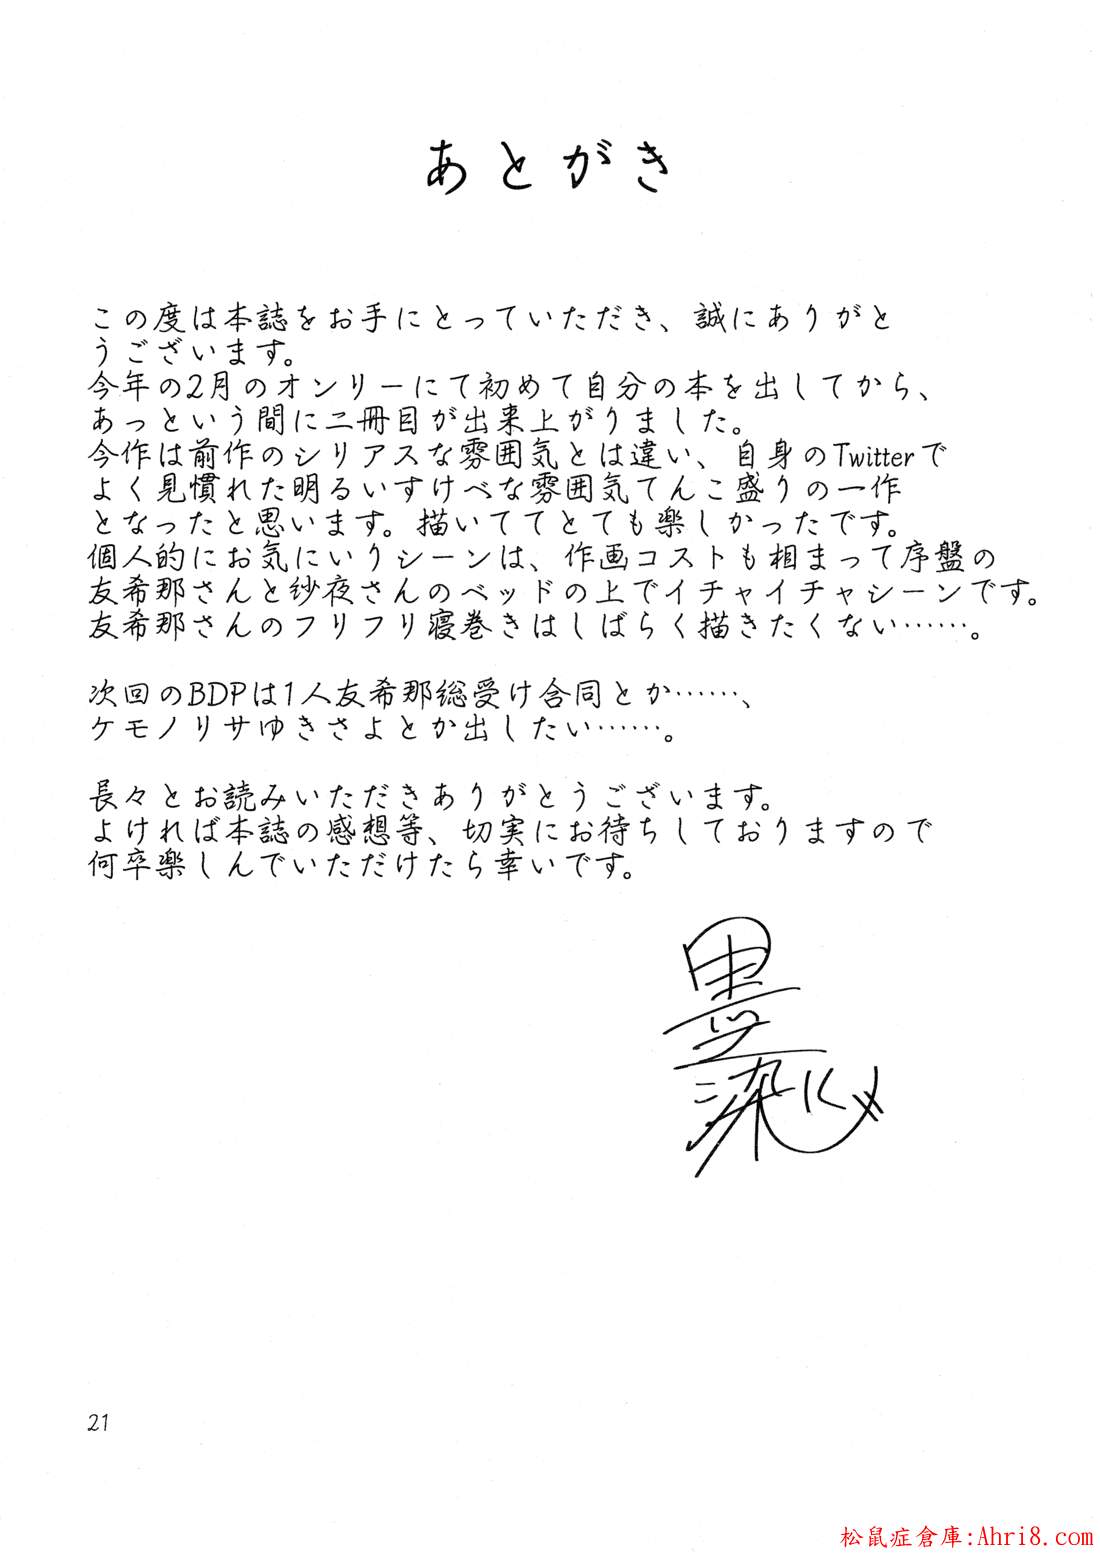 あとがき
この度は本誌をお手にとっていただき、誠にありがと
うございます。
今年の2月のオンリーにて初めて自分の本を出してから、
あっという間に二冊目が出来上がりました。
今作は前作のシリアスな雰囲気とは違い、自身のTwitterで
よく見慣れた明るいすけべな雰囲気てんこ盛りの一作
となったと思います。描いててとても楽しかったです。
個人的にお気にいりシーンは、作画コストも相まって序盤の
友希那さんと紗夜さんのベッドの上でイチャイチャシーンです。
友希那さんのフリフリ寝巻きはしばらく描きたくない……。
次回のBDPは1人友希那総受け合同とか……、
ケモノリサゆきさよとか出したい……。
長々とお読みいただきありがとうございます。
よければ本誌の感想等、切実にお待ちしておりますので
何卒楽しんでいただけたら幸いです。
墨
染
21
松鼠症倉庫:Ahri8.com